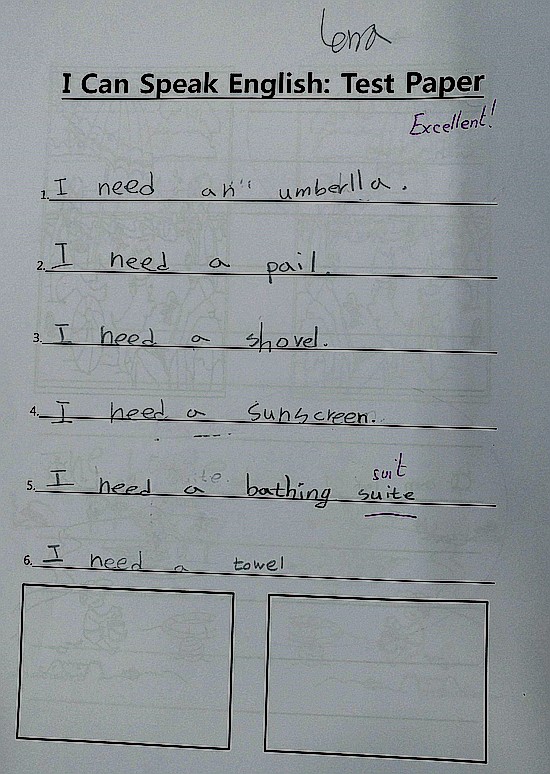 Lena
I Can Speak English: Test Paper
Excellent!
1. I need an umberlla.
2. I need a pail.
3. I need a shovel.
4. I need a sunscreen.
suit
5. I need a bathing suite
6. I need a towel